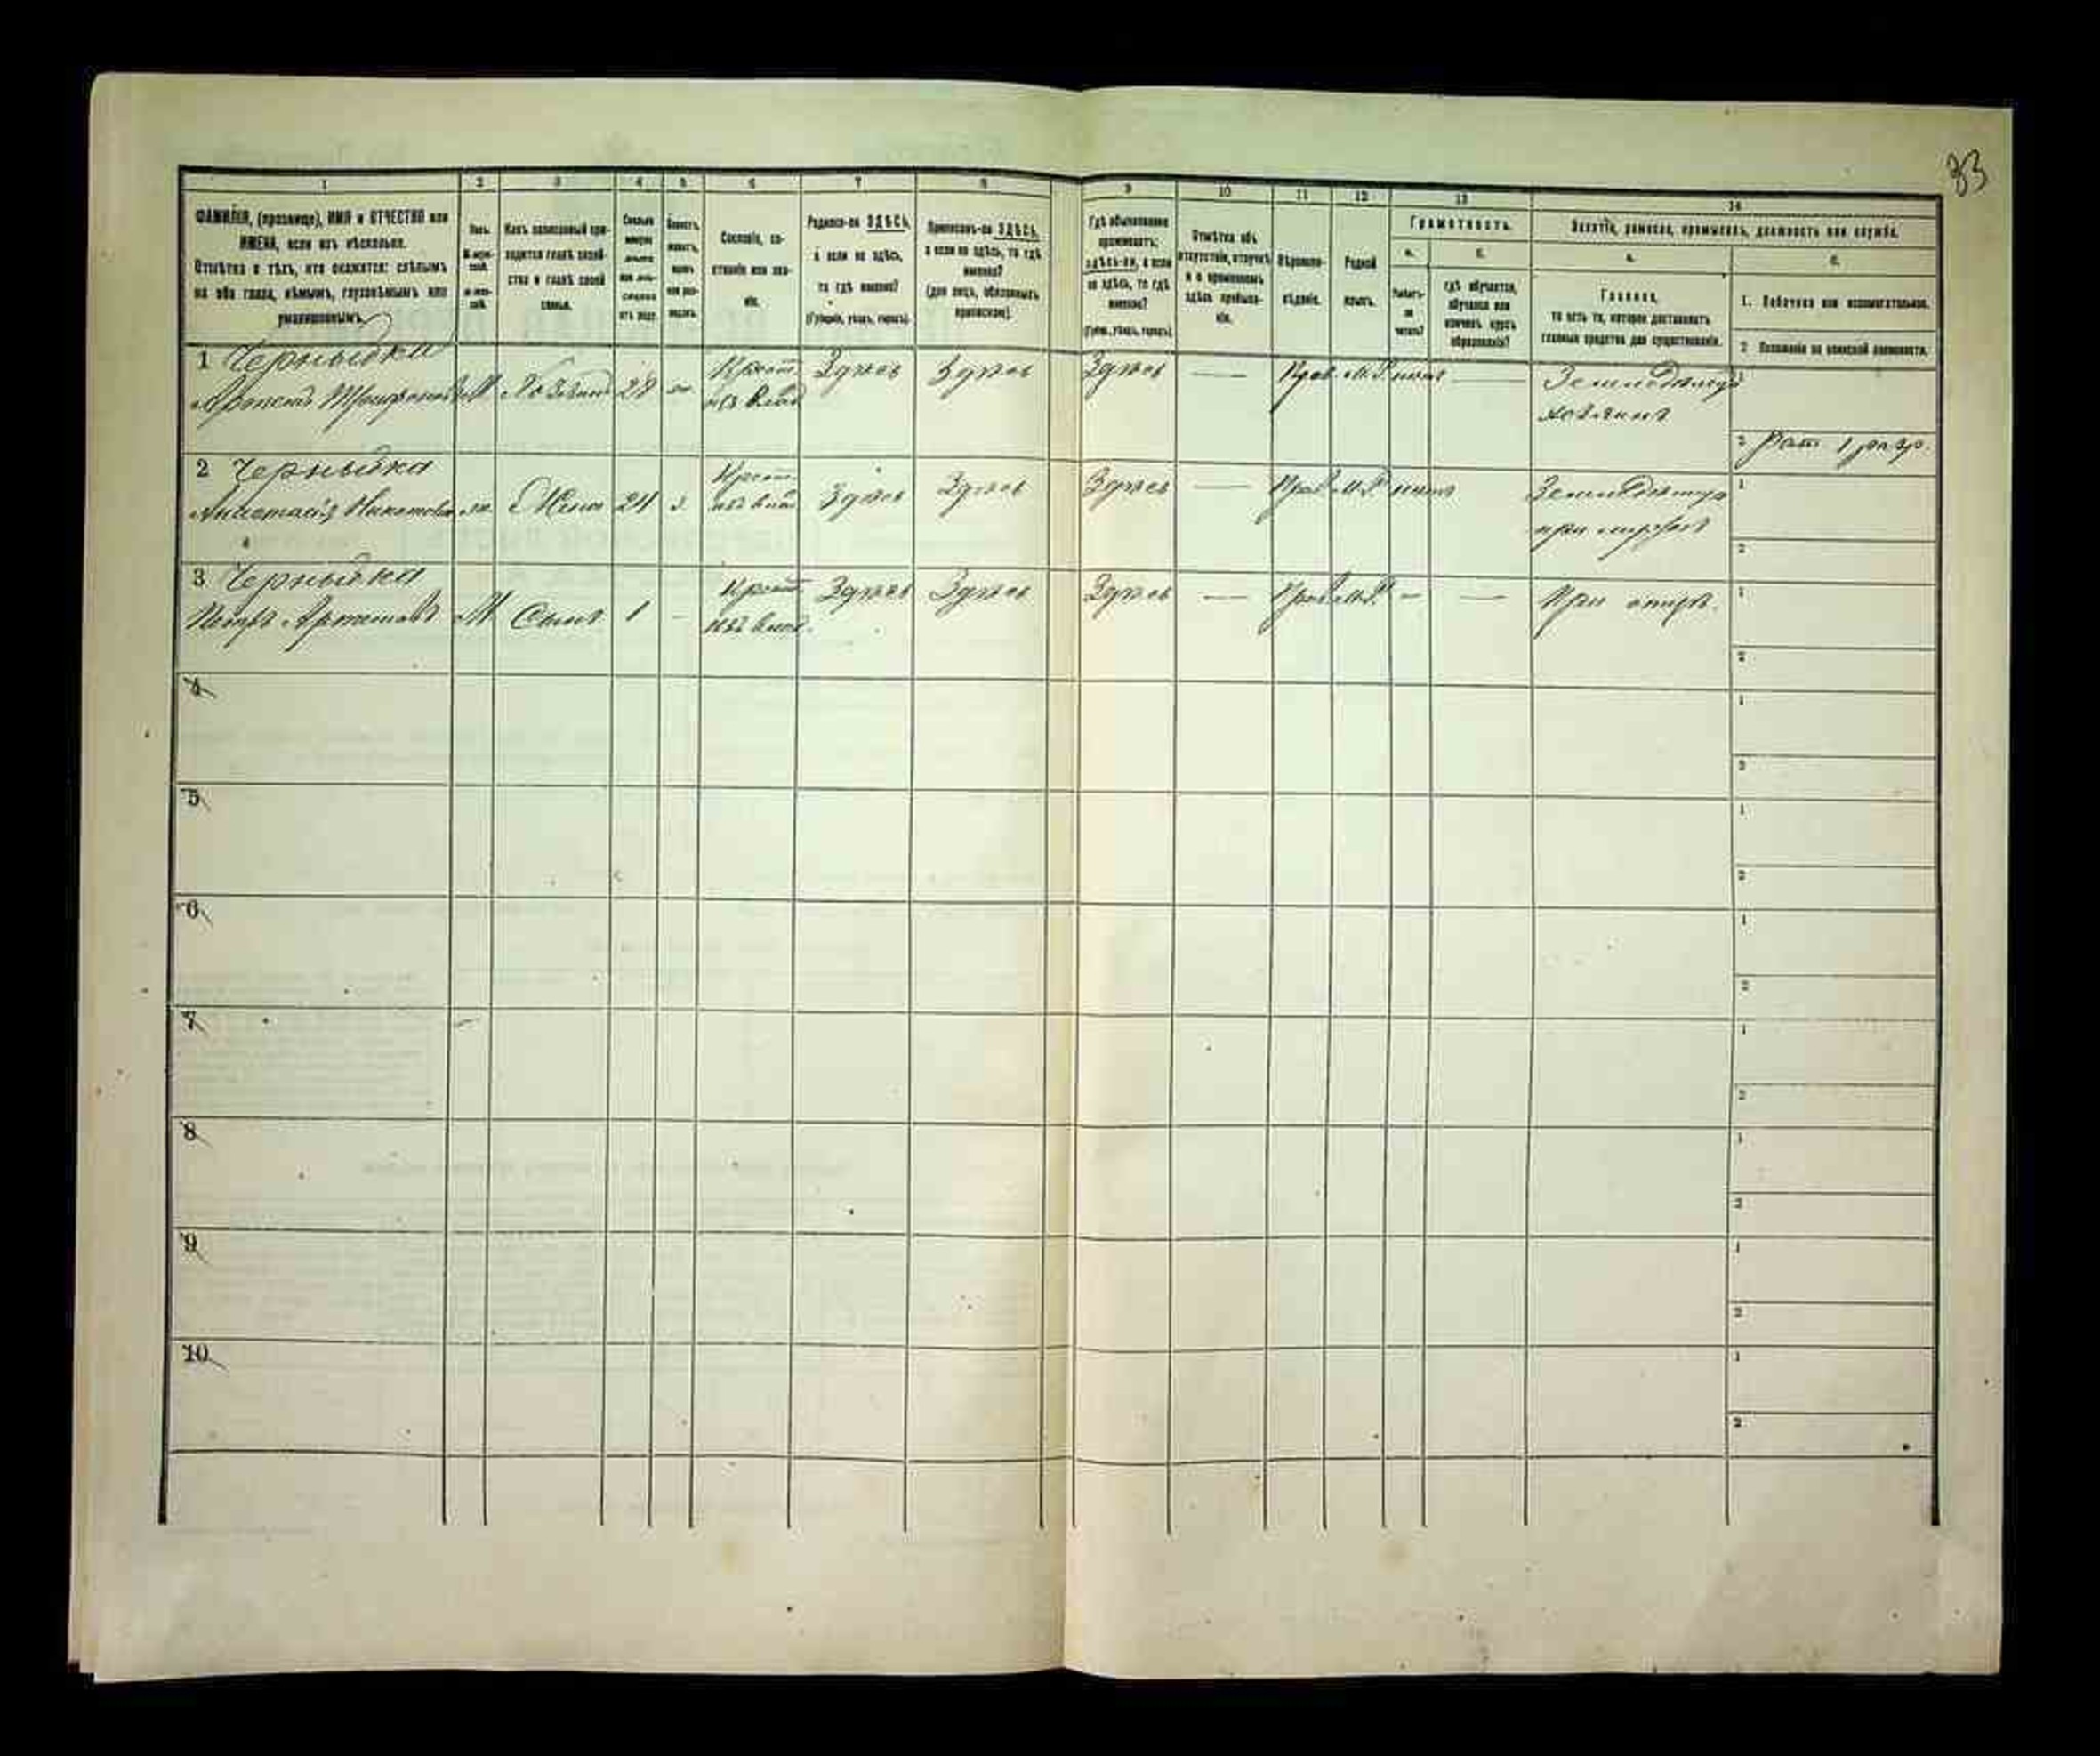 33
1 2 3 4 5 6 7 8 9 10 11 12 13 14
ФАМИЛІЯ, (прозвище), ИМЯ и ОТЧЕСТВО или
ИМЕНА, если ихъ нѣсколько.
Отмѣтка о тѣхъ, кто окажется: слѣпымъ
на оба глаза, нѣмымъ, глухонѣмымъ или
умалишеннымъ.
Полъ.
Какъ записанный при-
ходится главѣ хозяй-
ства и главѣ своей
семьи.
Сословіе, со-
стояніе или зва-
ніе.
Родился-ли ЗДѢСЬ,
а если не здѣсь,
то гдѣ именно?
(Губернія, уѣздъ, городъ).
Приписанъ-ли ЗДѢСЬ,
а если не здѣсь, то гдѣ
именно?
(для лицъ, обязанныхъ
припискою).
Гдѣ обыкновенно
проживаетъ:
здѣсь-ли, а если
не здѣсь, то гдѣ
именно?
(Губ., уѣздъ, городъ).
Отмѣтка объ
отсутствіи, отлучкѣ
и о временномъ
здѣсь пребыва-
ніи.
Вѣроиспо-
вѣданіе.
Родной
языкъ.
Грамотность.
а.
Умѣетъ-
ли
читать?
б.
гдѣ обучается,
обучался или
кончилъ курсъ
образованія?
Занятіе, ремесло, промыселъ, должность или служба.
а.
Главное,
то есть то, которое доставляетъ
главныя средства для существованія.
б.
1. Побочное или вспомогательное.
2. Положеніе по воинской повинности.
1 Чернышка
Артемъ Трифоновъ М Хозяинъ 28 Крест. изъ влад. Здѣсь Здѣсь Здѣсь — Прав. М.Р. — Земледѣлецъ хозяинъ
1
2 Рат. 1 разр.
2 Чернышка
Анастасія Жена 24 Крест. изъ влад. Здѣсь Здѣсь Здѣсь — Прав. М.Р. при мужѣ
1
2
3 Чернышка
Петръ Артемовъ М Сынъ 1 - Крест. изъ влад. Здѣсь Здѣсь Здѣсь — Прав. М.Р. — — При отцѣ.
1
2
4
1
2
5
1
2
6
1
2
7
1
2
8
1
2
9
1
2
10
1
2